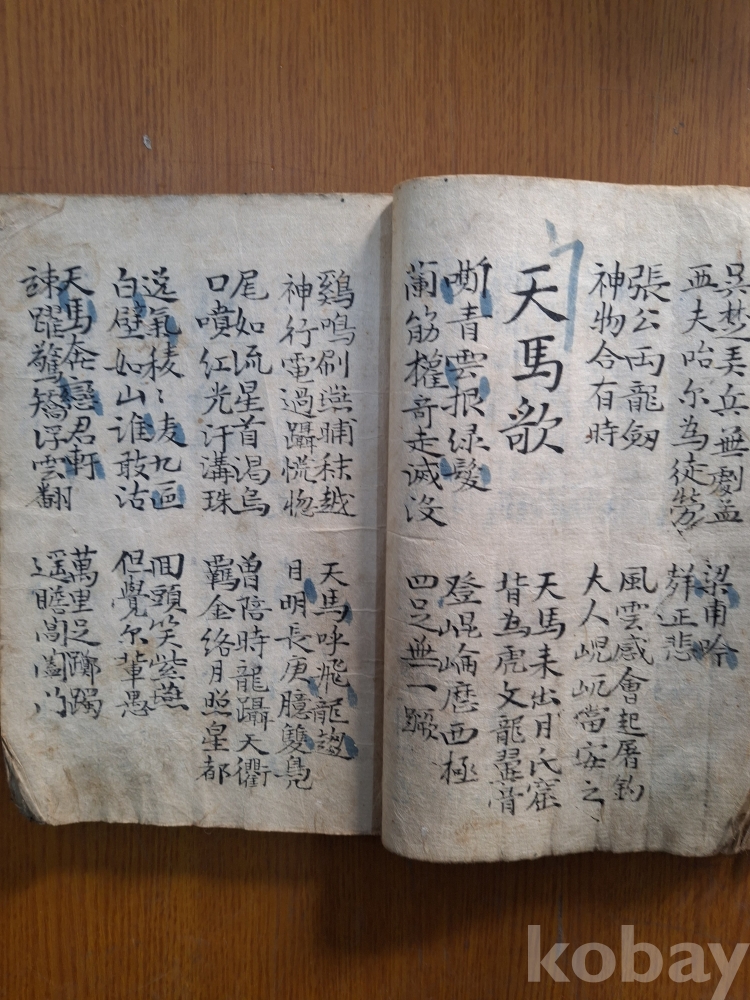 吳楚弄兵無劇孟
亞夫咍尔為徒勞
梁甫吟
聲正悲
張公両龍劔
神物合有時
風雲感會起屠釣
大人峴屼當安之
天馬歌
天馬来出月氏窟
背為虎文龍翼骨
嘶青雲振緑髮
蘭筋權奇走滅沒
登崐崘歷西極
四足無一蹶
鷄鳴刷燕晡秣越
神行電過躡慌惚
天馬呼飛龍趨
目明長庚臆雙鳧
尾如流星首渴烏
口噴紅光汗溝珠
曽陪時龍躡天衢
羈金絡月照星都
逸氣稜〻凌九區
白壁如山谁敢沽
囬頭笑紫燕
但覺尔輩愚
天馬奔戀君軒
竦躍驚矯浮雲翻
萬里足躑躅
遥瞻閶闔门
kobay